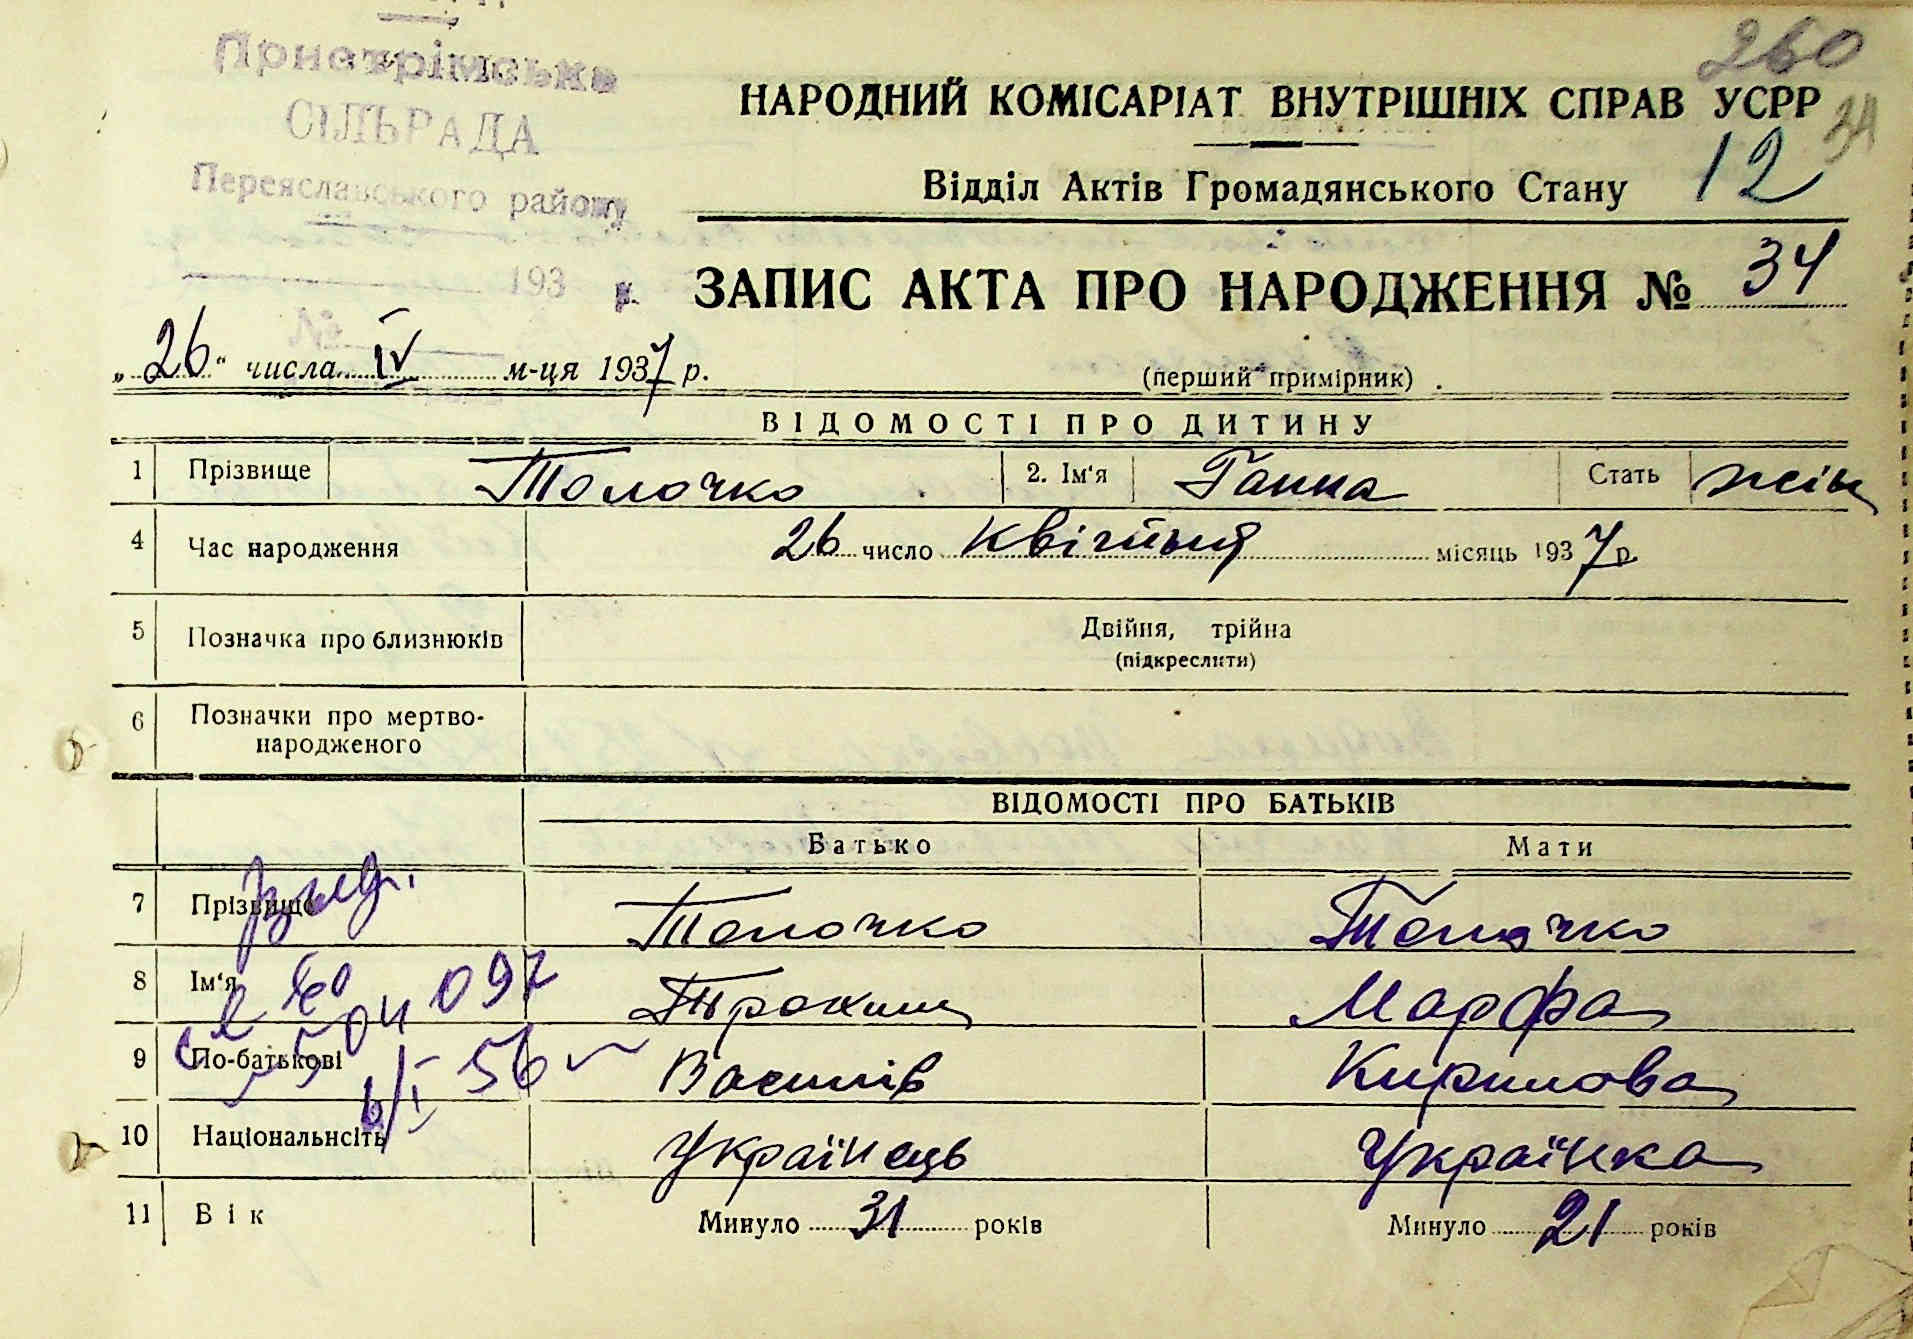 260
Пристрімська
СІЛЬРАДА
Переяславського району
193 р.
№
НАРОДНИЙ КОМІСАРІАТ ВНУТРІШНІХ СПРАВ УСРР
34
Відділ Актів Громадянського Стану
12
ЗАПИС АКТА ПРО НАРОДЖЕННЯ № 34
„26“ числа IV м-ця 1937 р.
(перший примірник)
ВІДОМОСТІ ПРО ДИТИНУ
1 Прізвище Толочко 2. Ім'я Ганна Стать жін
4 Час народження 26 число Квітня місяць 1937 р.
5 Позначка про близнюків Двійня, трійна
(підкреслити)
6 Позначки про мертво-
народженого
ВІДОМОСТІ ПРО БАТЬКІВ
Батько Мати
7 Прізвище Толочко Толочко
8 Ім'я Трохим Марфа
9 По-батькові Василів Кирилова
10 Національнсіть Українець Українка
11 Вік Минуло 31 років Минуло 21 років
097
6/I 56